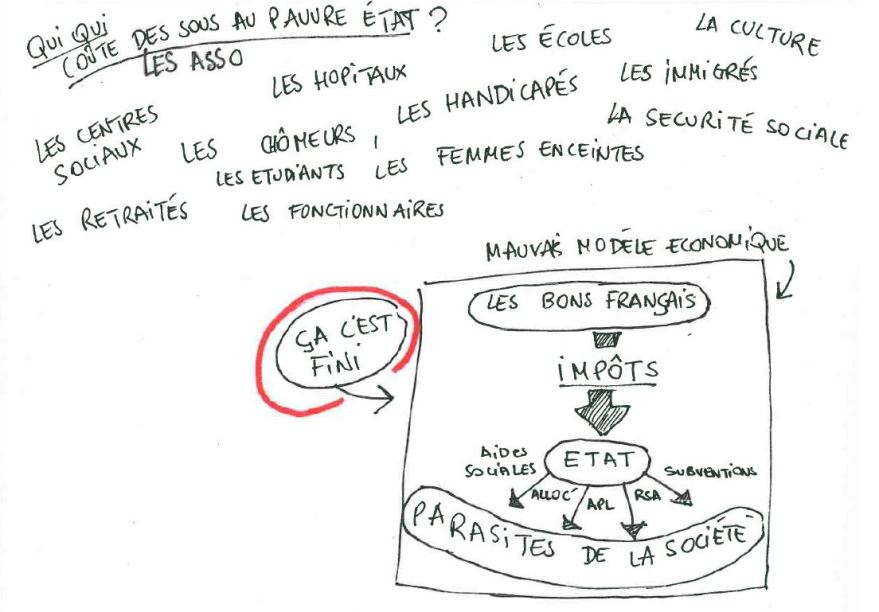 QUI QUI
COÛTE DES SOUS AU PAUVRE ÉTAT ?
LES ASSO
LES HOPITAUX
LES ÉCOLES
LA CULTURE
LES CENTRES
SOCIAUX
LES CHÔMEURS,
LES HANDICAPÉS
LES IMMIGRÉS
LA SECURITÉ SOCIALE
LES ETUDIANTS
LES FEMMES ENCEINTES
LES RETRAITÉS
LES FONCTIONNAIRES
MAUVAIS MODÈLE ECONOMIQUE
ÇA C'EST
FINI
LES BONS FRANÇAIS
IMPÔTS
ETAT
AIDES
SOCIALES
ALLOC'
APL
RSA
SUBVENTIONS
PARASITES DE LA SOCIÉTÉ